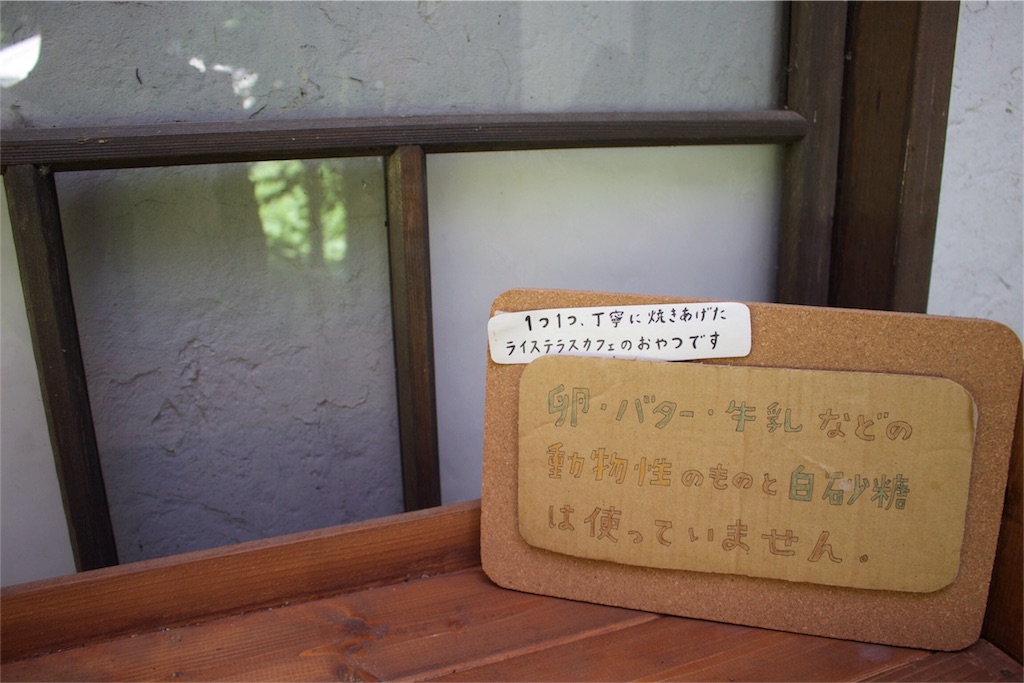 1つ1つ、丁寧に焼きあげた
ライステラスカフェのおやつです
卵・バター・牛乳などの
動物性のものと白砂糖
は使っていません。